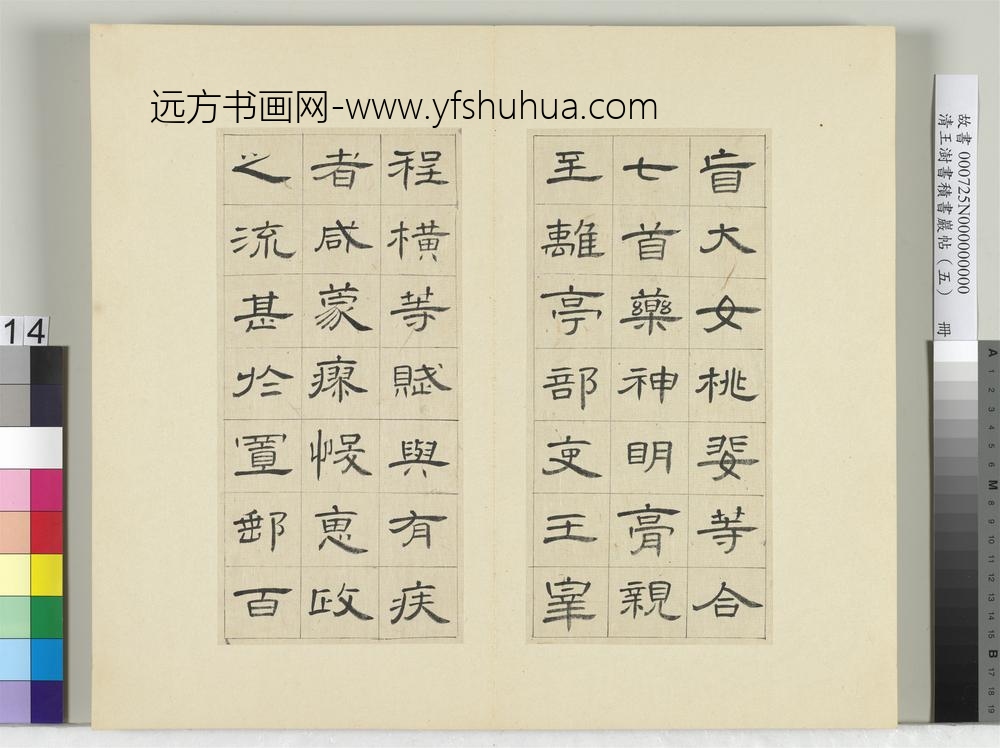 远方书画网-www.yfshuhua.com
䀇大女桃婓等合
七首藥神明膏親
至離亭部吏王宰
程橫等賦與有疾
者咸蒙瘳悛惠政
之流甚於置郵百
故書 000725N000000000
清王澍書積書巖帖（五） 冊
14
A 1 2 3 4 5 6 M 8 9 10 11 12 13 14 15 B 17 18 19